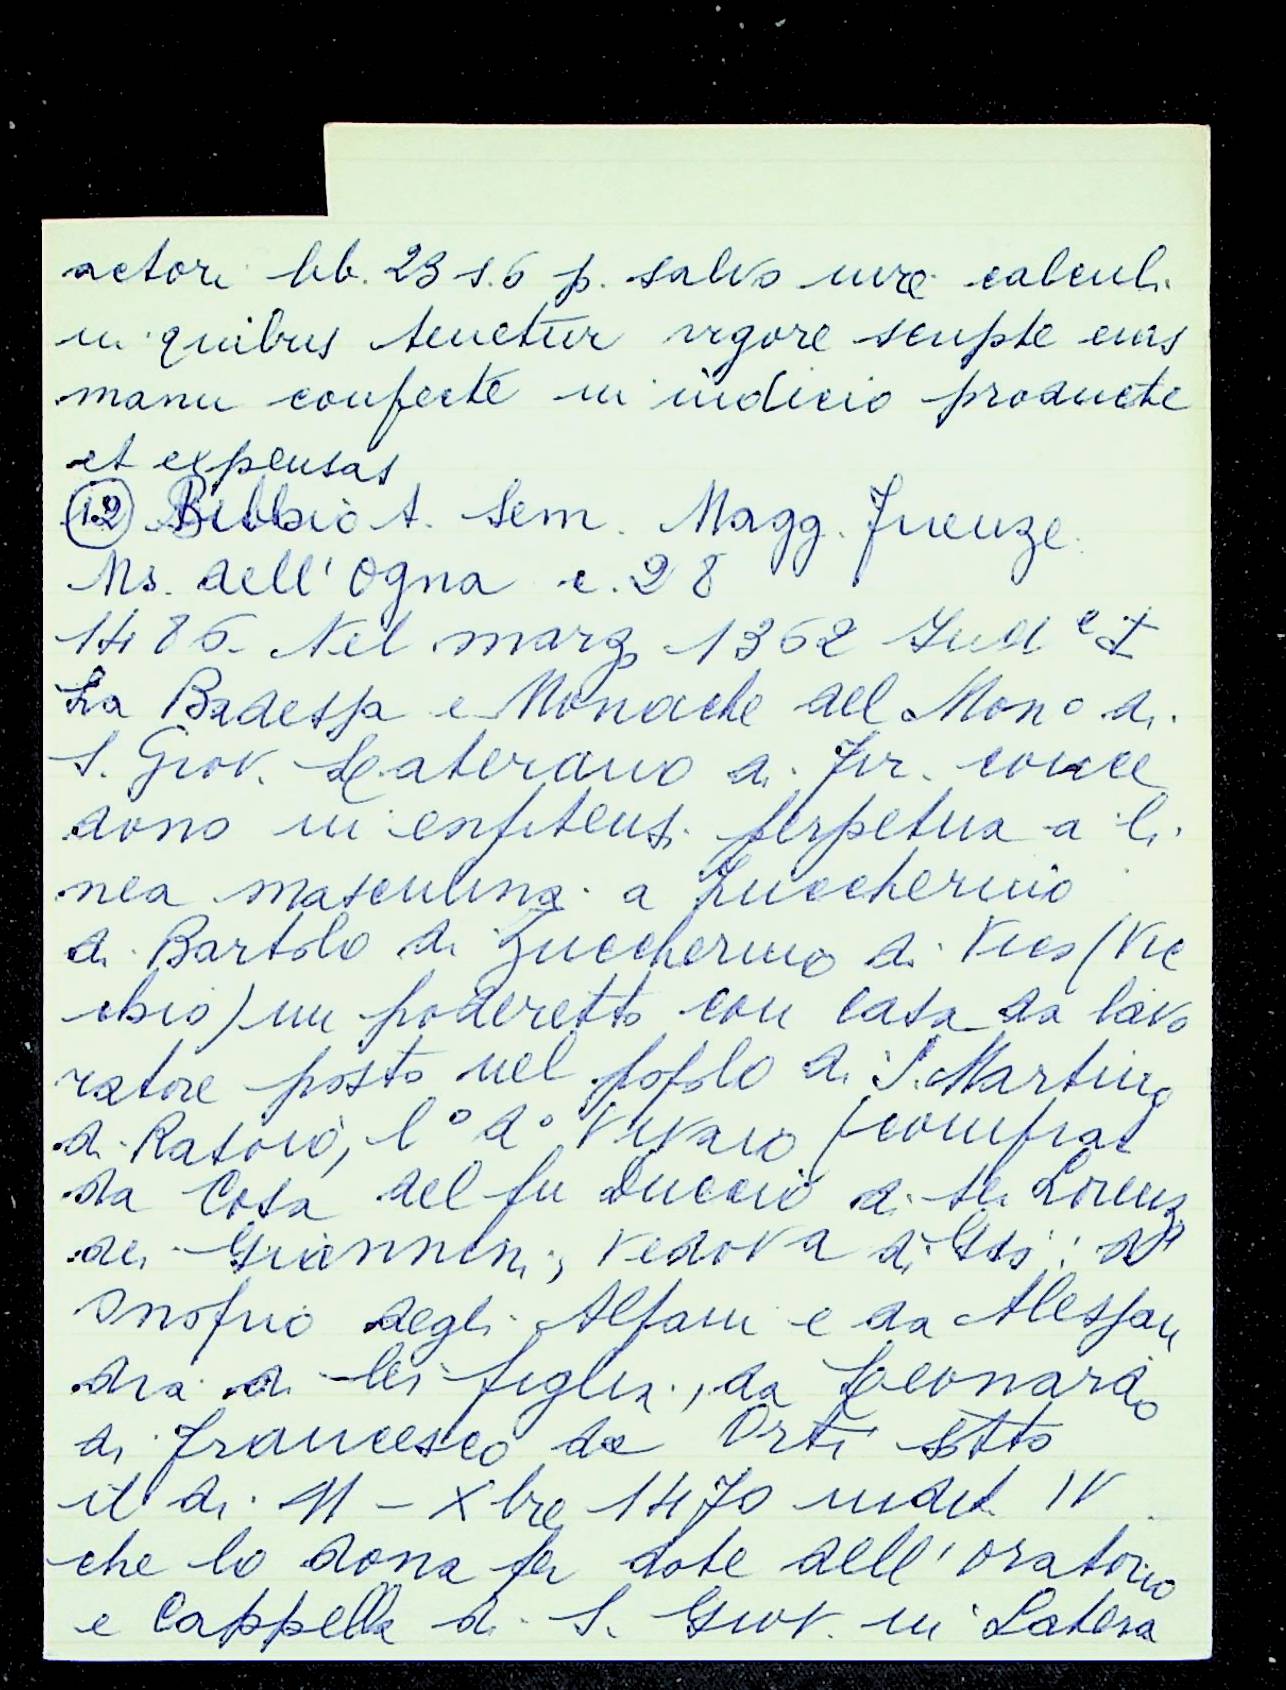 actori lib. 23 s. 6 p. salvo iure calculi
in quibus tenetur vigore scripte eius
manu confecte in iudicio producte
et expensas
(12) Bibbio t. Sem. Magg. Firenze.
Ms. dell'Ogna c. 28
1486. Nel marzo 1362 Ind e I
La Badessa e Monache del Mon° di
S. Giov. Laterano di Fir. conce
dono in enfiteusi perpetua a li
nea masculina a Zuccherino
di Bartolo di Zuccherino di Vico (Vic
chio) un poderetto con casa da lavo
ratore posto nel popolo di S. Martino
di Rasoio, l° d° Vivaio (comprat
da Cosa del fu Duccio di ser Lorenzo
dei Giannini, vedova di
Onofrio degli Alfani e da Alessan
dra di lei figlia, da Leonardo
di Francesco da Orti sotto
il di 11 - Xbre 1470 indict IV
che lo dona per dote dell'oratorio
e Cappella di S. Giov. in Latera